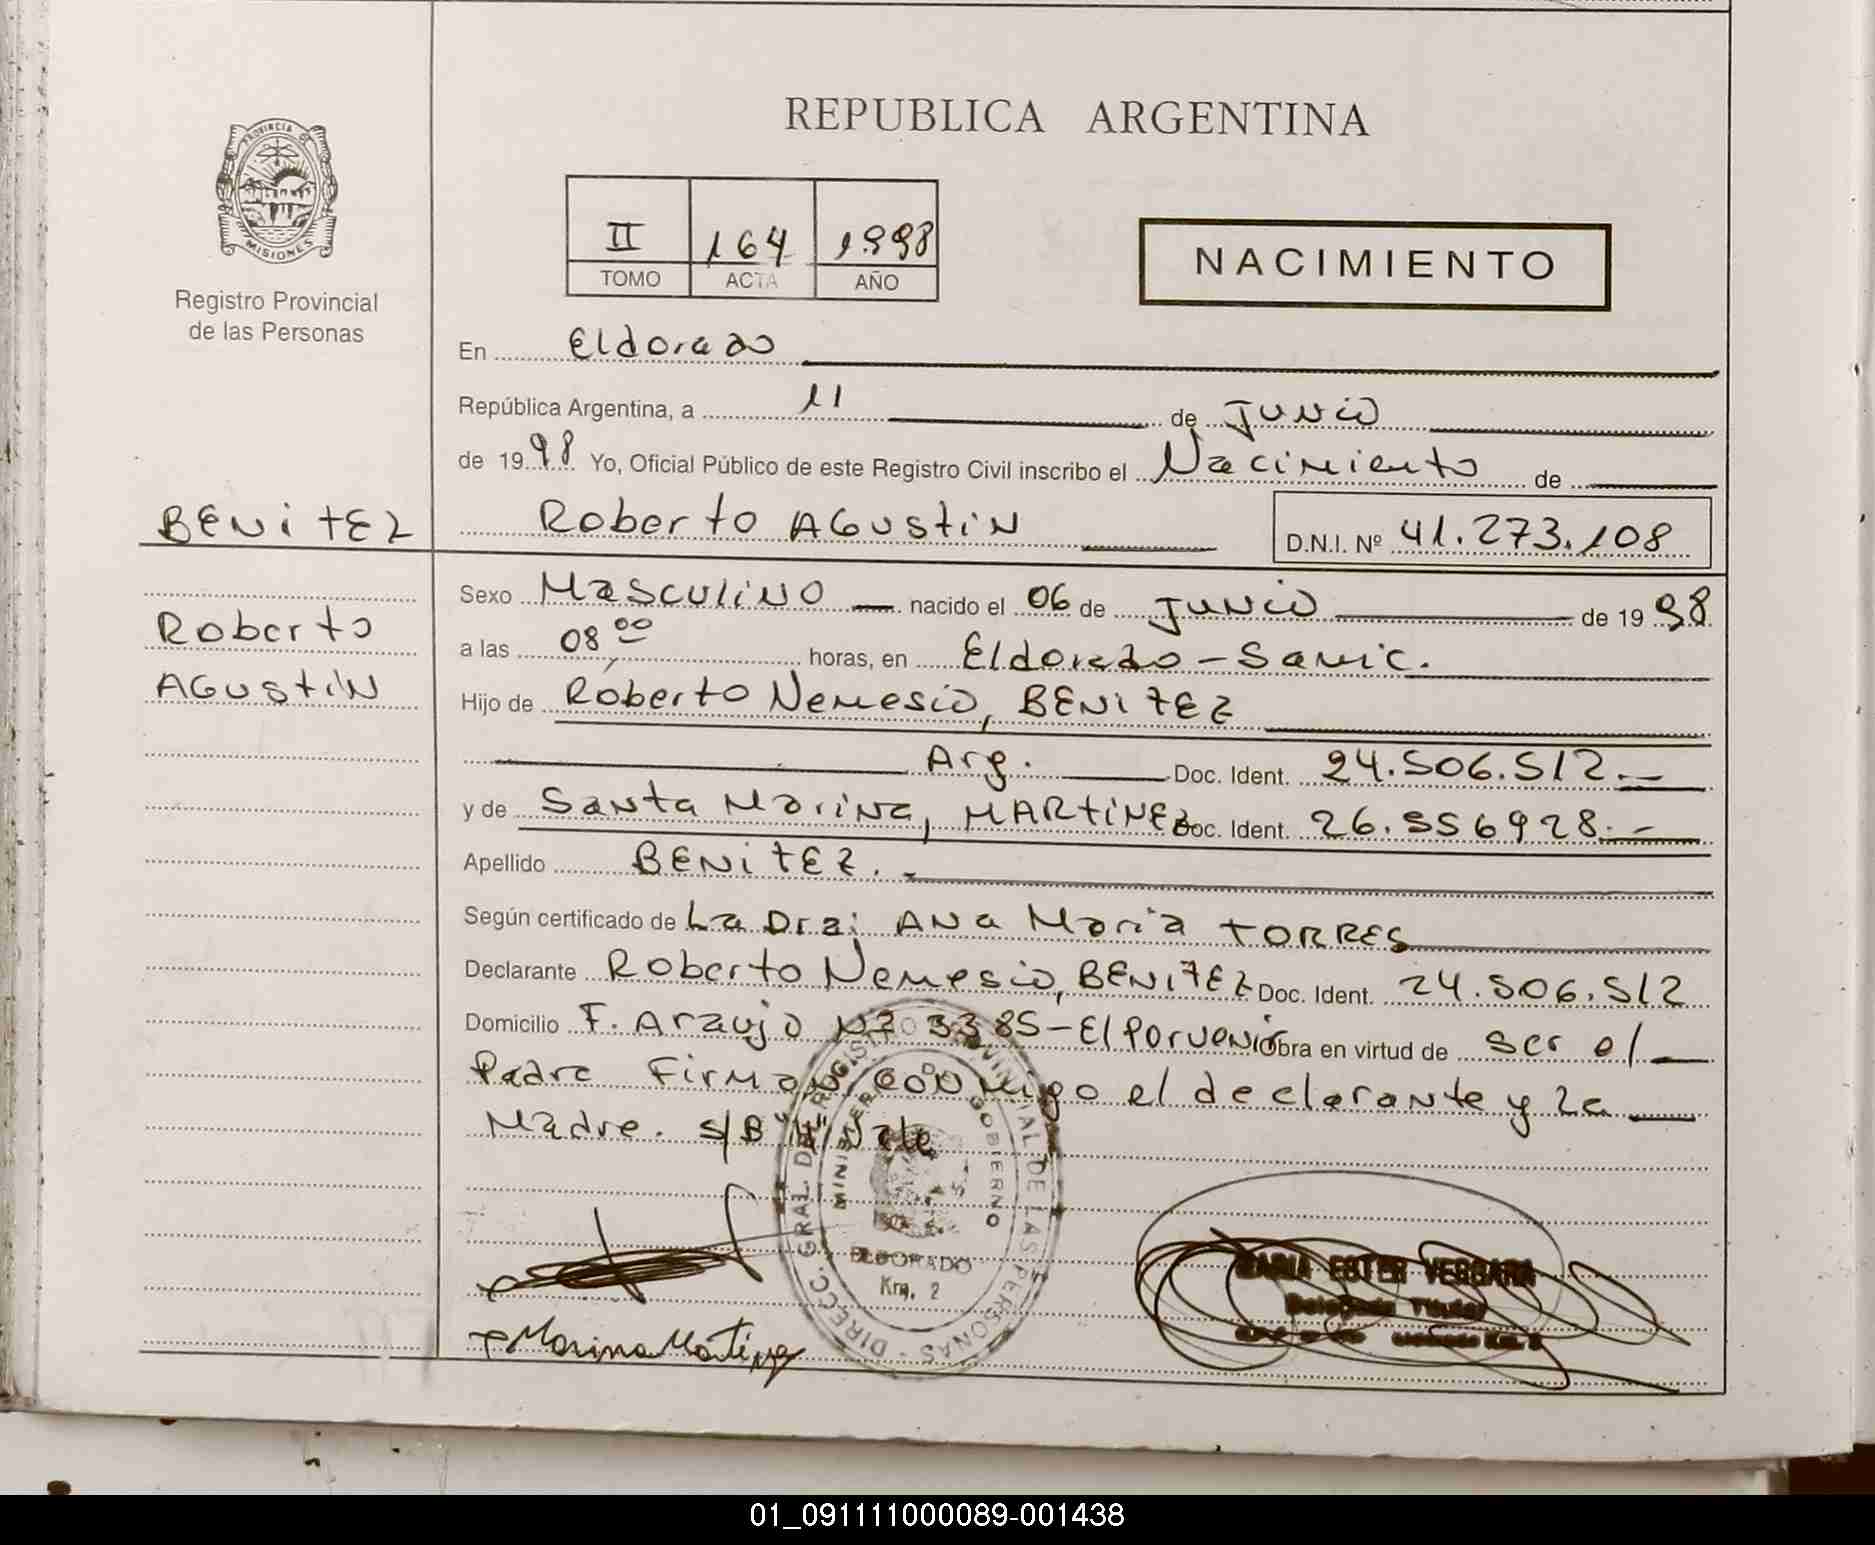 REPUBLICA ARGENTINA
PROVINCIA
MISIONES
Registro Provincial
de las Personas
II 164 1998
TOMO ACTA AÑO
NACIMIENTO
En Eldorado
República Argentina, a 11 de Junio
de 1998 Yo, Oficial Público de este Registro Civil inscribo el Nacimiento de
BENITEZ
Roberto AGustiN
D.N.I. Nº 41.273.108
Roberto
AGustiN
Sexo Masculino nacido el 06 de Junio de 1998
a las 08,00 horas, en Eldorado - Samic.
Hijo de Roberto Nemesio, BENITEZ
Arg. Doc. Ident. 24.506.512.-
y de Santa Marina, MARTINEZ Doc. Ident. 26.556928.-
Apellido BENITEZ.-
Según certificado de La Dra; ANa Maria TORRES
Declarante Roberto Nemesio, BENITEZ Doc. Ident. 24.506.512
Domicilio F. Araujo Nº 3385-El Porvenir Obra en virtud de ser el
Padre Firman conmigo el declarante y la
Madre. S/B "4" Vale
DIRECC. GRAL. DEL REGISTRO PROVINCIAL DE LAS PERSONAS
MINISTERIO DE GOBIERNO
ELDORADO
Km. 2
Marina Martinez
MARIA ESTER VERGARA
Delegada Titular
01_091111000089-001438